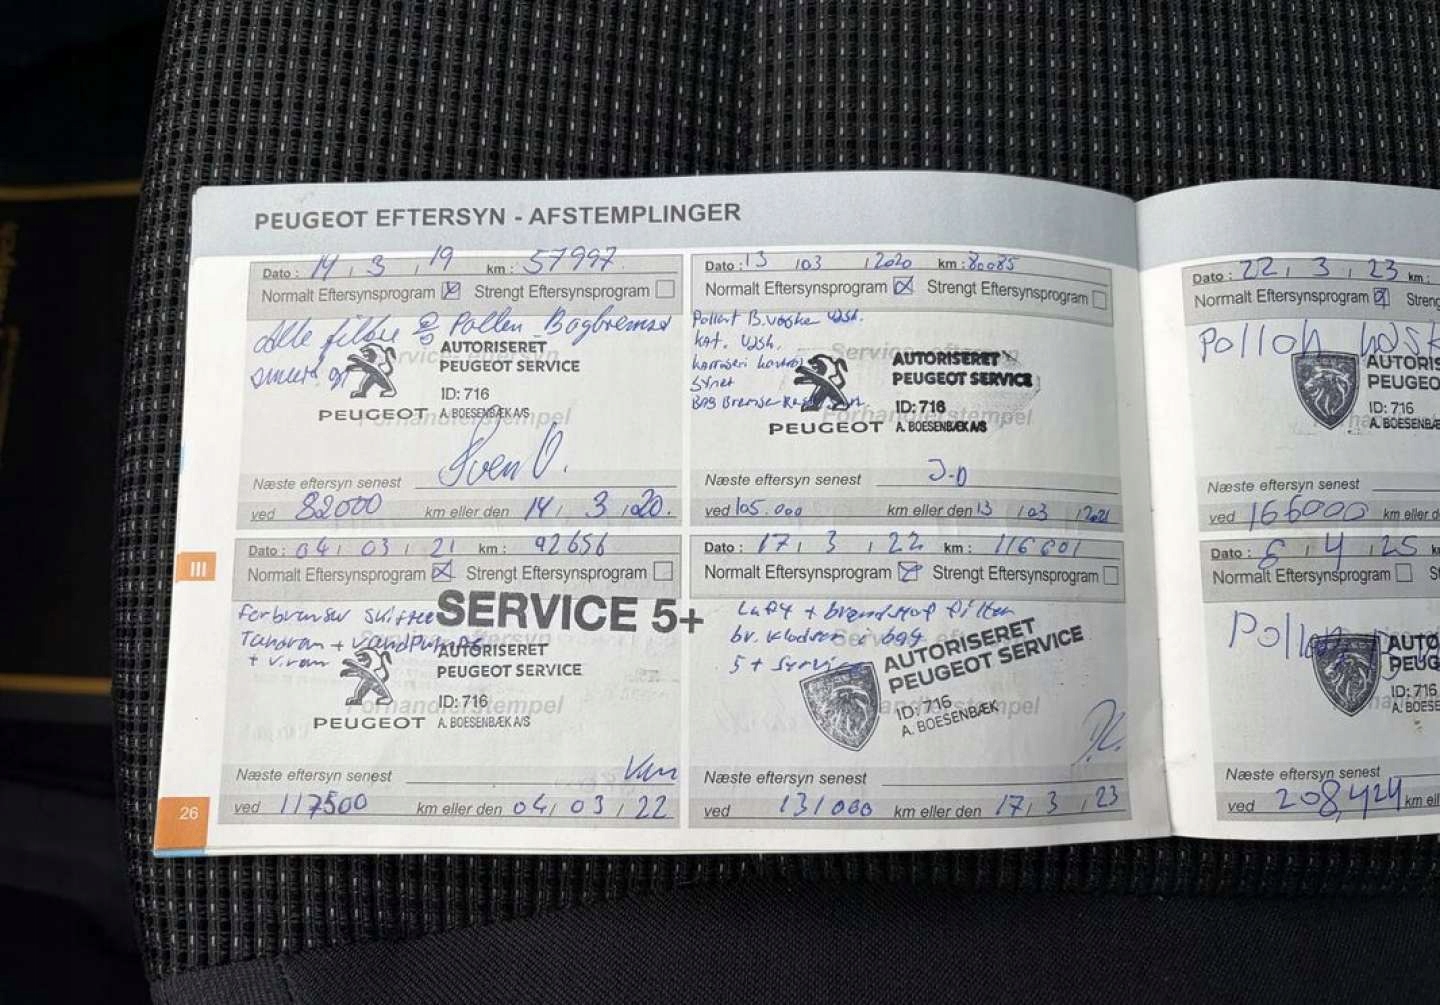 PEUGEOT EFTERSYN - AFSTEMPLINGER
Dato : 14 , 3 , 19 km : 57997
Normalt Eftersynsprogram Strengt Eftersynsprogram
Alle filtre Pollen Bagbremser
AUTORISERET
PEUGEOT SERVICE
ID: 716
PEUGEOT A. BOESENBÆK A/S
Forhandlerstempel
Sven O.
Næste eftersyn senest
ved 82000 km eller den 14 , 3 , 20.
Dato : 13 , 03 , 2020 km : 80085
Normalt Eftersynsprogram Strengt Eftersynsprogram
B.væske udsk.
udsk.
karroseri kontrol
Synet
BAG Bremser
AUTORISERET
PEUGEOT SERVICE
ID: 716
PEUGEOT A. BOESENBÆK A/S
Forhandlerstempel
J.O
Næste eftersyn senest
ved 105.000 km eller den 13 , 03 , 2021
Dato : 04 , 03 , 21 km : 92656
Normalt Eftersynsprogram Strengt Eftersynsprogram
SERVICE 5+
Tandrem + Vandpumpe
AUTORISERET
PEUGEOT SERVICE
ID: 716
PEUGEOT A. BOESENBÆK A/S
Forhandlerstempel
Næste eftersyn senest
ved 117500 km eller den 04 , 03 , 22
Dato : 17 , 3 , 22 km : 116601
Normalt Eftersynsprogram Strengt Eftersynsprogram
Luft + brændstof filter
br. klodser i bag
5+ Service
AUTORISERET
PEUGEOT SERVICE
ID: 716
A. BOESENBÆK
Forhandlerstempel
Næste eftersyn senest
ved 131000 km eller den 17 , 3 , 23
III
26
Dato : 22 , 3 , 23 km :
Normalt Eftersynsprogram
Pollen
ID: 716
Næste eftersyn senest
ved 166000 km eller
Dato : 8 , 4 , 25
Normalt Eftersynsprogram
Pollen
ID: 716
Næste eftersyn senest
ved 208,424 km